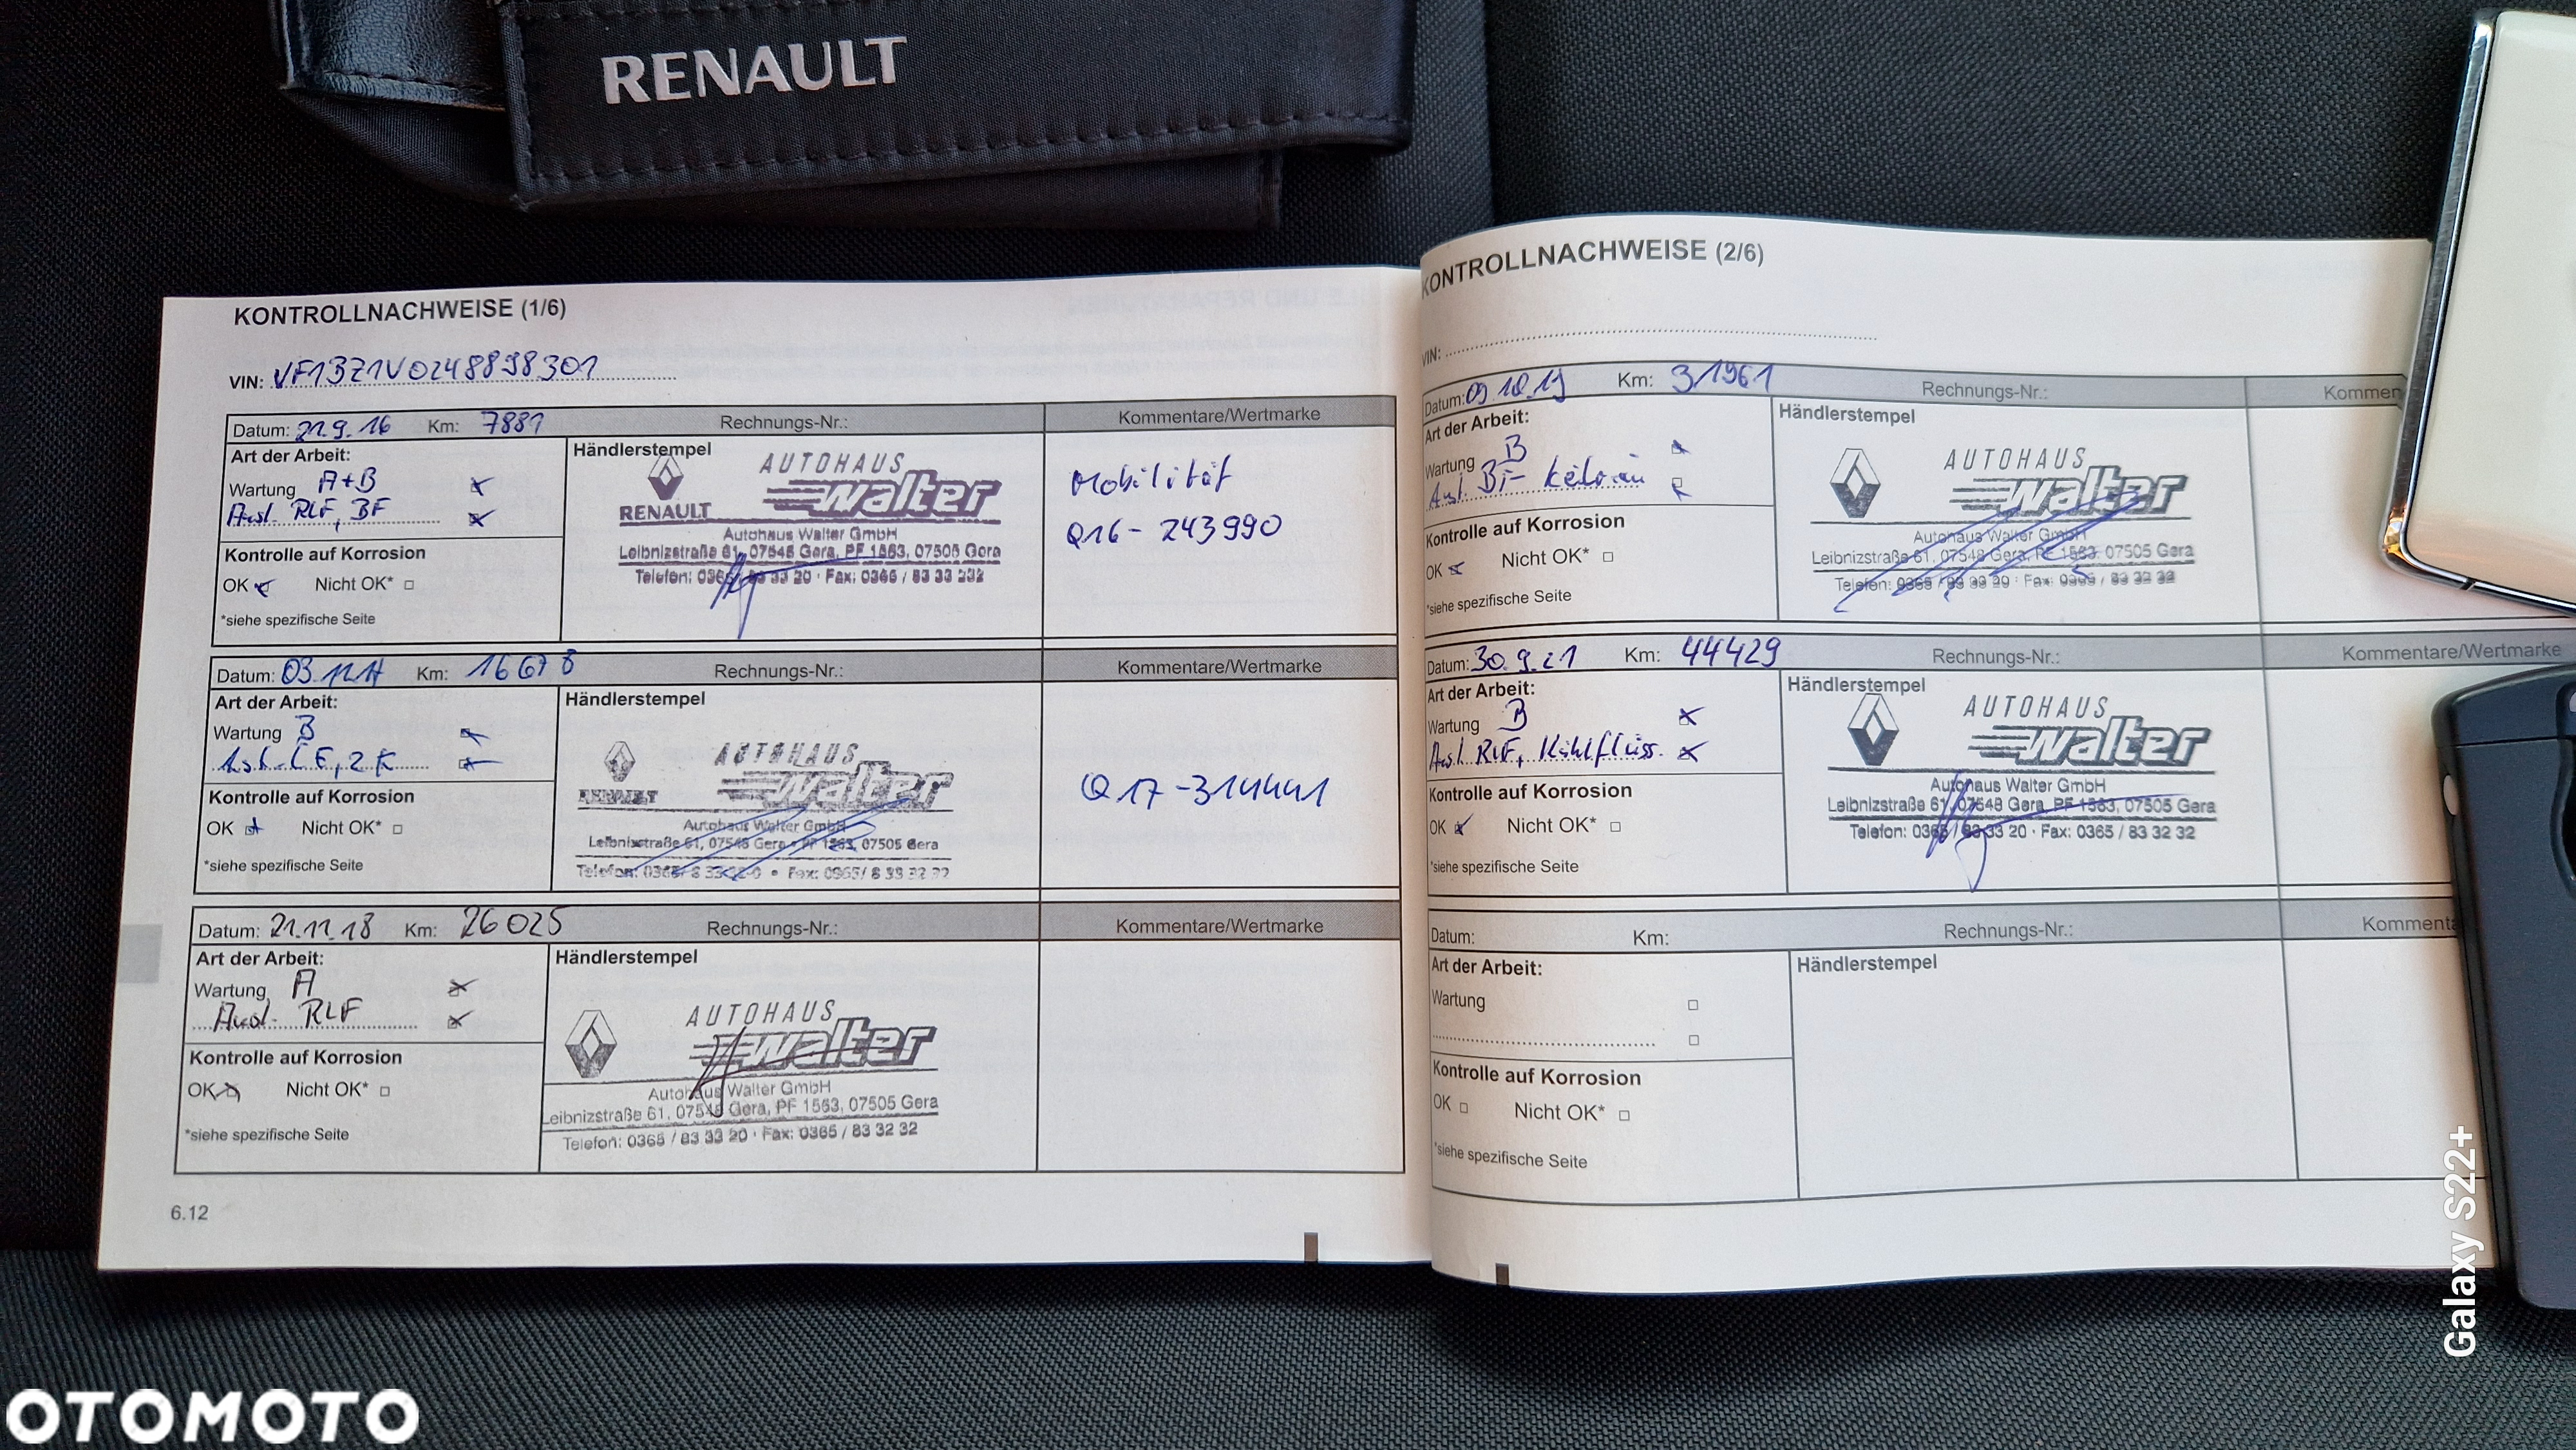 RENAULT
KONTROLLNACHWEISE (1/6)
VIN: VF1BZ1V0248898301
Datum: 21.9.16 Km: 7881 Rechnungs-Nr.: Kommentare/Wertmarke
Art der Arbeit:
Wartung A+B
Ausl. RLF, BF
Kontrolle auf Korrosion
OK Nicht OK*
*siehe spezifische Seite
Händlerstempel
AUTOHAUS
walter
RENAULT
Autohaus Walter GmbH
Leibnizstraße 61, 07548 Gera, PF 1563, 07505 Gera
Telefon: 0365 / 83 33 20 · Fax: 0365 / 83 33 232
Mobilität
Q16-243990
Datum: 03.12.17 Km: 16678 Rechnungs-Nr.: Kommentare/Wertmarke
Art der Arbeit:
Wartung B
Kontrolle auf Korrosion
OK Nicht OK*
*siehe spezifische Seite
Händlerstempel
AUTOHAUS
walter
RENAULT
Autohaus Walter GmbH
Leibnizstraße 61, 07548 Gera • PF 1563, 07505 Gera
Q17-314441
Datum: 21.11.18 Km: 26025 Rechnungs-Nr.: Kommentare/Wertmarke
Art der Arbeit:
Wartung A
Ausl. RLF
Kontrolle auf Korrosion
OK Nicht OK*
*siehe spezifische Seite
Händlerstempel
AUTOHAUS
walter
Autohaus Walter GmbH
Leibnizstraße 61, 07548 Gera, PF 1563, 07505 Gera
Telefon: 0365 / 83 33 20 · Fax: 0365 / 83 32 32
6.12
KONTROLLNACHWEISE (2/6)
VIN:
Datum: 09.10.19 Km: 31961 Rechnungs-Nr.: Kommen
Art der Arbeit:
Wartung B
Ausl. BF
Kontrolle auf Korrosion
OK Nicht OK*
*siehe spezifische Seite
Händlerstempel
AUTOHAUS
walter
Autohaus Walter GmbH
Leibnizstraße 61, 07548 Gera, PF 1563, 07505 Gera
Telefon: 0365 / 83 33 20 · Fax: 0365 / 83 32 32
Datum: 30.9.21 Km: 44429 Rechnungs-Nr.: Kommentare/Wertmarke
Art der Arbeit:
Wartung B
Ausl. RLF, Kühlflüss.
Kontrolle auf Korrosion
OK Nicht OK*
*siehe spezifische Seite
Händlerstempel
AUTOHAUS
walter
Autohaus Walter GmbH
Leibnizstraße 61, 07548 Gera, PF 1563, 07505 Gera
Telefon: 0365 / 83 33 20 · Fax: 0365 / 83 32 32
Datum: Km: Rechnungs-Nr.: Kommenta
Art der Arbeit:
Wartung
Kontrolle auf Korrosion
OK Nicht OK*
*siehe spezifische Seite
Händlerstempel
Galaxy S22+
OTOMOTO